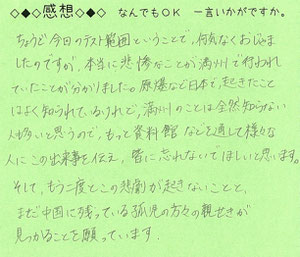 ◇◆◇感想◇◆◇ なんでもOK 一言いかがですか。
ちょうど今回のテスト範囲ということで、何気なくおじゃま
したのですが、本当に悲惨なことが満州で行われ
ていたことが分かりました。原爆など日本で、起きたこと
はよく知られているけれど、満州のことは全然知らない
人も多いと思うので、もっと資料館などを通して様々な
人にこの出来事を伝え、皆に忘れないでほしいと思います。
そして、もう二度とこの悲劇が起きないことと、
まだ中国に残っている孤児の方々の親せきが
見つかることを願っています.